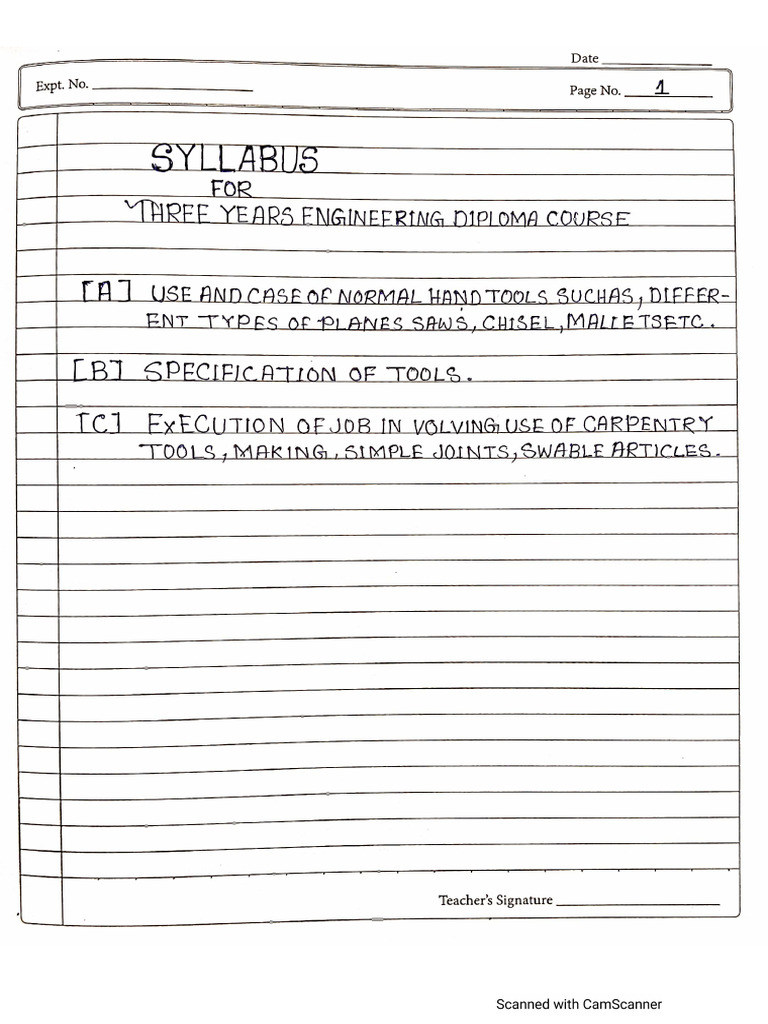 Date
Expt. No.
Page No. 1
SYLLABUS
FOR
THREE YEARS ENGINEERING DIPLOMA COURSE
[A] USE AND CASE OF NORMAL HAND TOOLS SUCHAS, DIFFER-
ENT TYPES OF PLANES SAWS, CHISEL, MALLETSETC.
[B] SPECIFICATION OF TOOLS.
[C] EXECUTION OF JOB IN VOLVING USE OF CARPENTRY
TOOLS, MAKING, SIMPLE JOINTS, SWABLE ARTICLES.
Teacher's Signature
Scanned with CamScanner